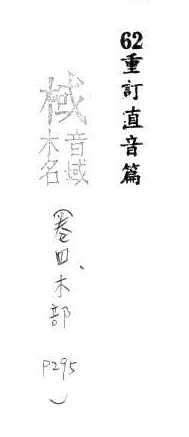 62重訂直音篇
棫
音域
木名
(卷四、木部 P295)